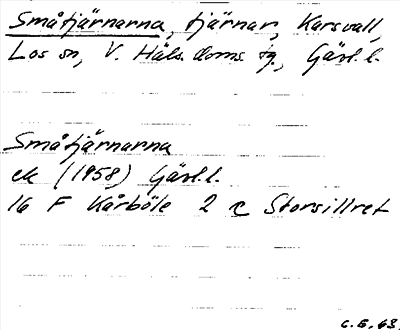 Småtjärnarna, tjärnar, Karsvall,
Los sn, V. Häls. doms. tg., Gävl. l.
Småtjärnarna
ek (1958) Gävl. l.
16 F Kårböle 2 c Storsillret
C. E. 63.